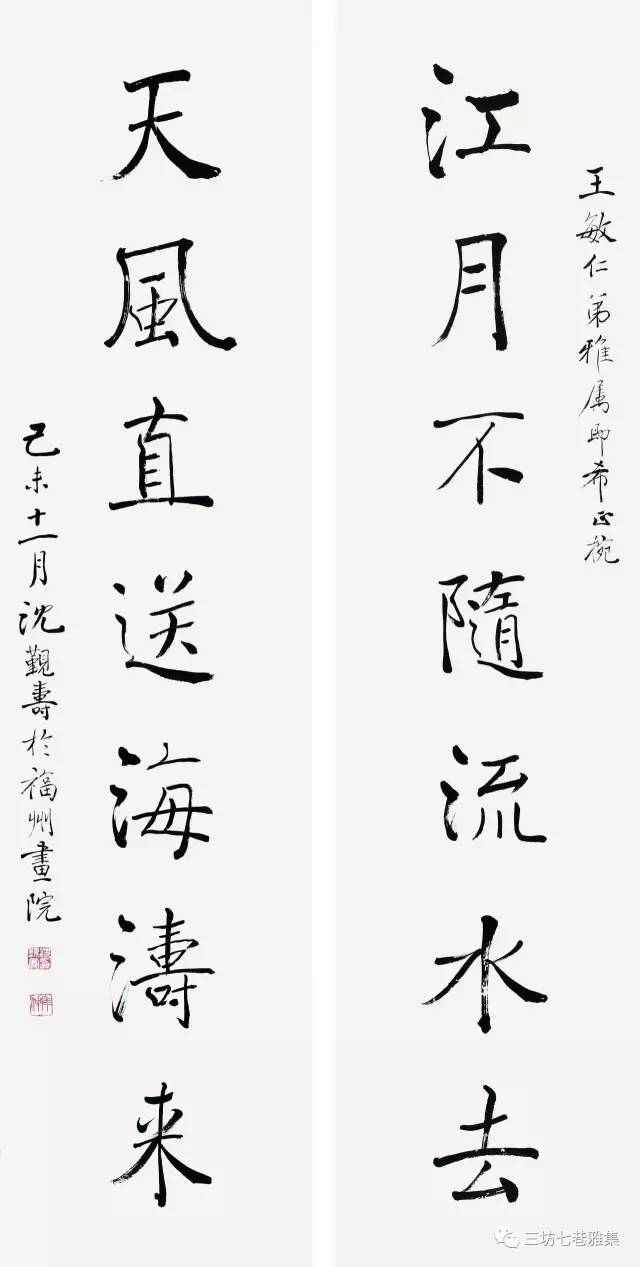 王敏仁弟雅属即希正椀
江月不隨流水去
天風直送海濤来
己未十一月沈覲壽於福州畫院
三坊七巷雅集